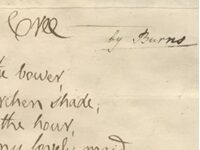 Cree
by Burns
e bower,
rchen shade;
the hour,
my lovely maid